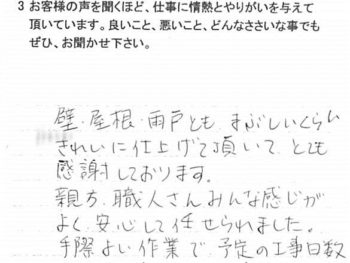 3 お客様の声を聞くほど、仕事に情熱とやりがいを与えて
頂いています。良いこと、悪いこと、どんなささいな事でも
ぜひ、お聞かせ下さい。
壁・屋根・雨戸とも まぶしいくらい
きれいに仕上げて頂いて とても
感謝しております。
親方、職人さんみんな感じが
よく、安心して任せられました。
手際よい作業で、予定の工事日数